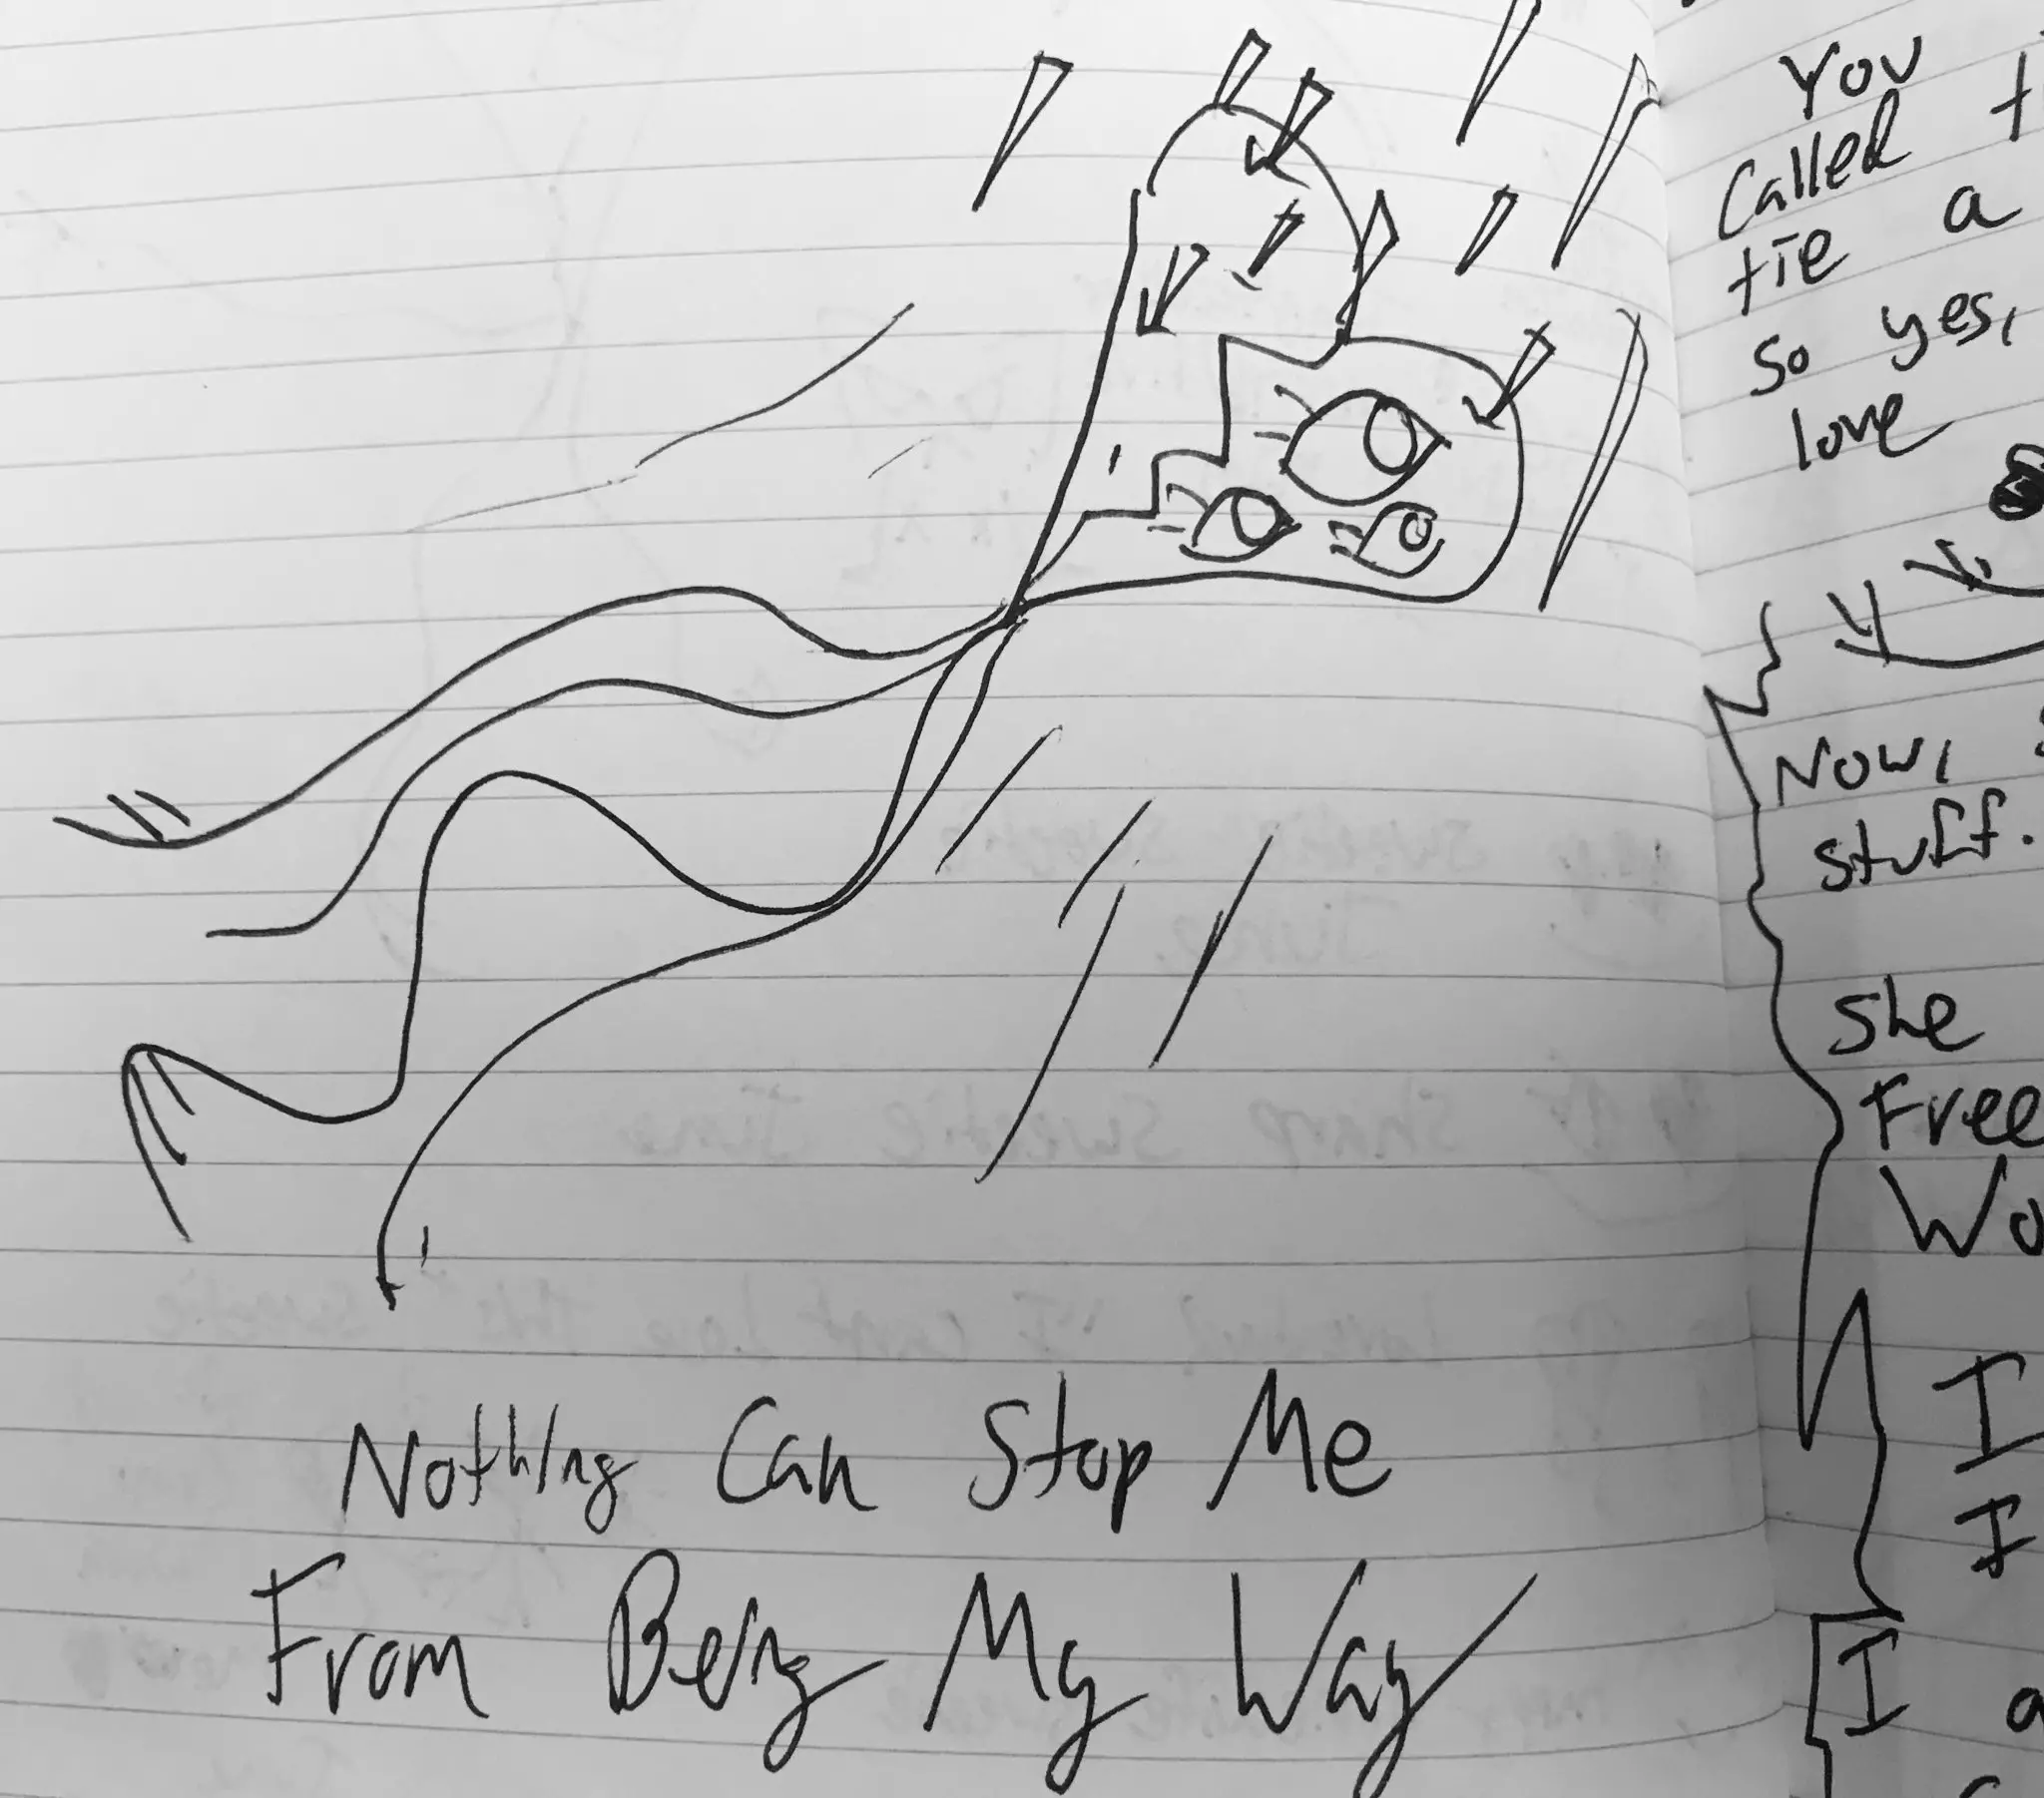 Nothing Can Stop Me
From Being My Way
You
Called
tie a
So yes,
love
Now,
Stuff.
She
Free
I
I
I a